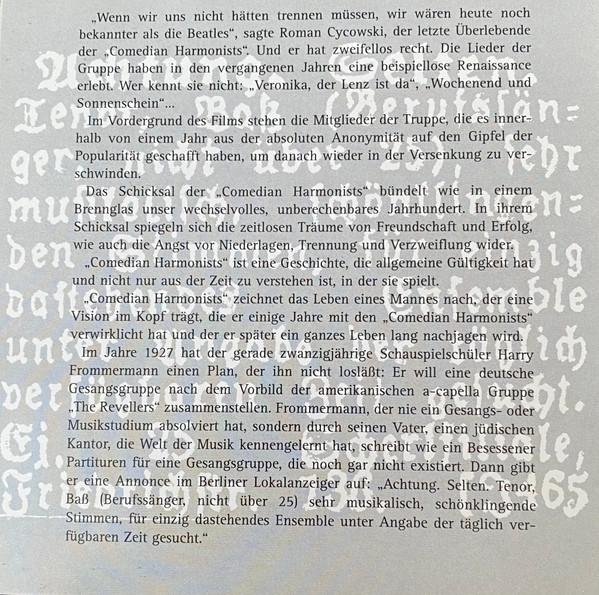 „Wenn wir uns nicht hätten trennen müssen, wir wären heute noch
bekannter als die Beatles“, sagte Roman Cycowski, der letzte Überlebende
der „Comedian Harmonists“. Und er hat zweifellos recht. Die Lieder der
Gruppe haben in den vergangenen Jahren eine beispiellose Renaissance
erlebt. Wer kennt sie nicht: „Veronika, der Lenz ist da“, „Wochenend und
Sonnenschein“...
Im Vordergrund des Films stehen die Mitglieder der Truppe, die es inner-
halb von einem Jahr aus der absoluten Anonymität auf den Gipfel der
Popularität geschafft haben, um danach wieder in der Versenkung zu ver-
schwinden.
Das Schicksal der „Comedian Harmonists“ bündelt wie in einem
Brennglas unser wechselvolles, unberechenbares Jahrhundert. In ihrem
Schicksal spiegeln sich die zeitlosen Träume von Freundschaft und Erfolg,
wie auch die Angst vor Niederlagen, Trennung und Verzweiflung wider.
„Comedian Harmonists“ ist eine Geschichte, die allgemeine Gültigkeit hat
und nicht nur aus der Zeit zu verstehen ist, in der sie spielt.
„Comedian Harmonists“ zeichnet das Leben eines Mannes nach, der eine
Vision im Kopf trägt, die er einige Jahre mit den „Comedian Harmonists“
verwirklicht hat und der er später ein ganzes Leben lang nachjagen wird.
Im Jahre 1927 hat der gerade zwanzigjährige Schauspielschüler Harry
Frommermann einen Plan, der ihn nicht losläßt: Er will eine deutsche
Gesangsgruppe nach dem Vorbild der amerikanischen a-capella Gruppe
„The Revellers“ zusammenstellen. Frommermann, der nie ein Gesangs- oder
Musikstudium absolviert hat, sondern durch seinen Vater, einen jüdischen
Kantor, die Welt der Musik kennengelernt hat, schreibt wie ein Besessener
Partituren für eine Gesangsgruppe, die noch gar nicht existiert. Dann gibt
er eine Annonce im Berliner Lokalanzeiger auf: „Achtung. Selten. Tenor,
Baß (Berufssänger, nicht über 25) sehr musikalisch, schönklingende
Stimmen, für einzig dastehendes Ensemble unter Angabe der täglich ver-
fügbaren Zeit gesucht.“